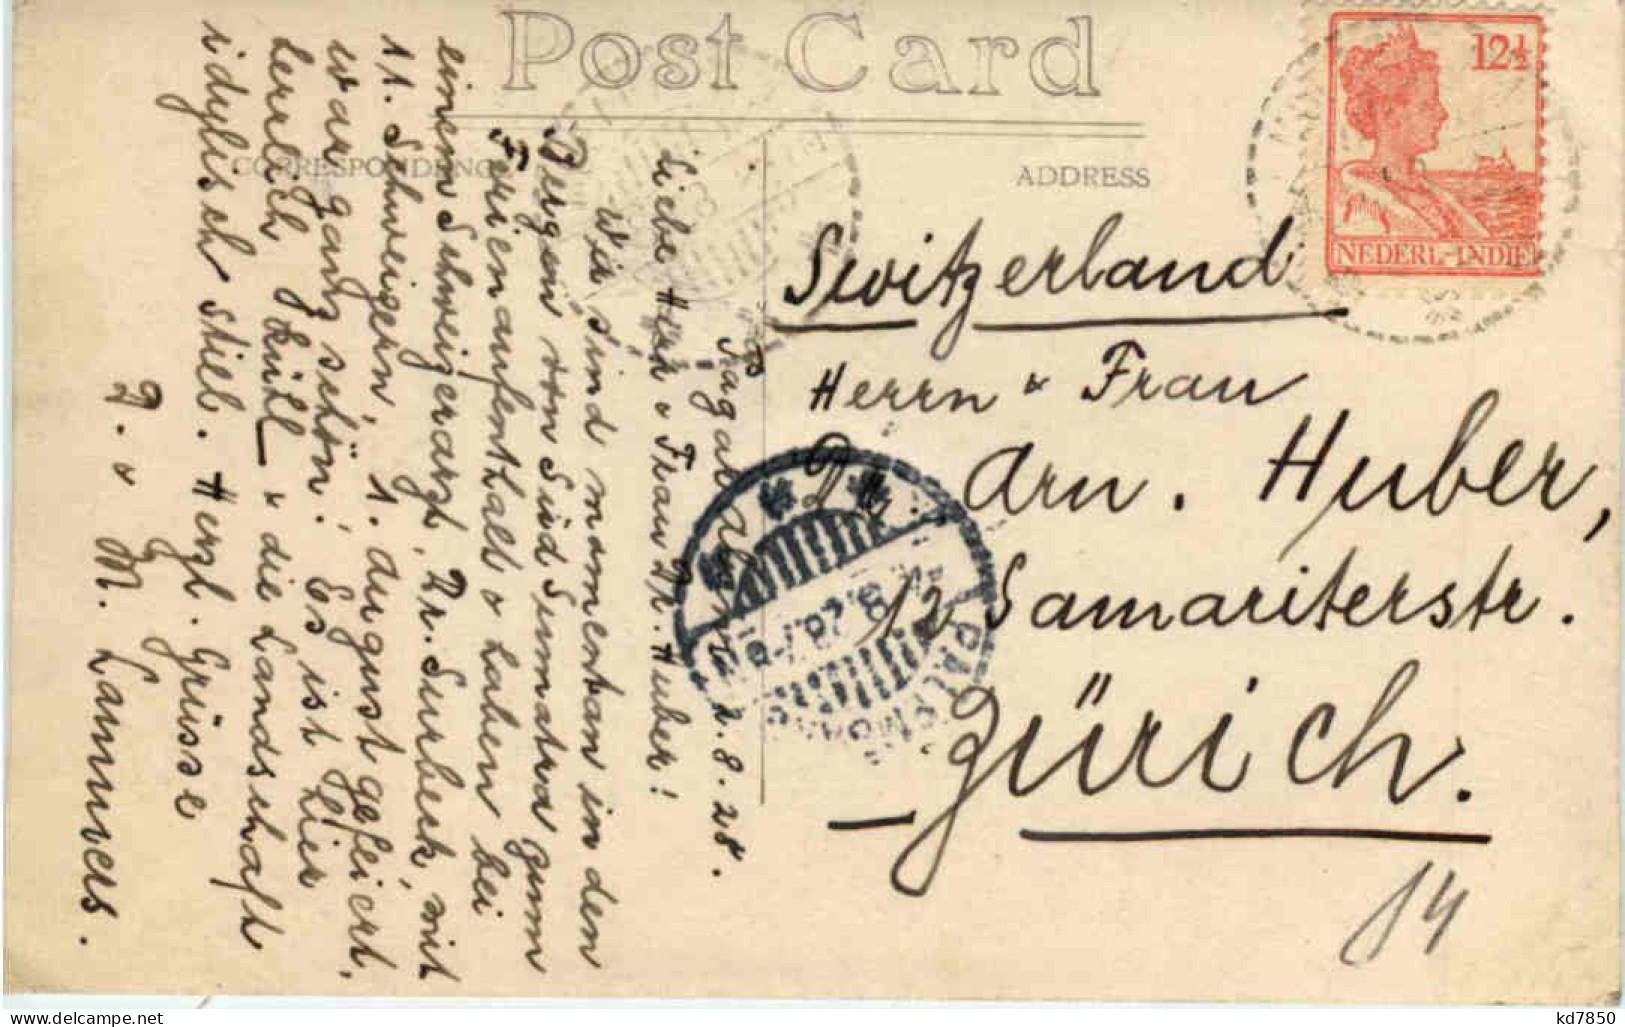 Post Card
CORRESPONDENCE
ADDRESS
12½
NEDERL-INDIE
Switzerland
Herrn u Frau
Dr. Arn. Huber,
12 Samariterstr.
Zürich.
14
2.8.28.
Liebe Herr u Frau Dr. Huber!
Wir sind momentan in den
Bergen von Süd Sumatra zum
Ferienaufenthalt u haben bei
einem Schweizerarzt, Dr. Surbeck, mit
11 Schweizern, 1. August gefeiert,
war ganz schön! Es ist hier
herrlich kühl u die Landschaft
idyllisch still. Herzl. Grüsse
M. Lanners.
kd7850